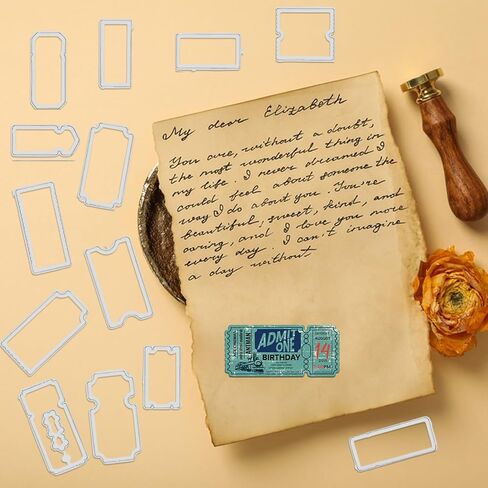 My dear Elizabeth
You are, without a doubt,
the most wonderful thing in
my life. I never dreamed I
could feel about someone the
way I do about you. You're
beautiful, sweet, kind, and
caring, and I love you more
every day. I can't imagine
a day without
ADMIT
ONE
BIRTHDAY
AUGUST
14